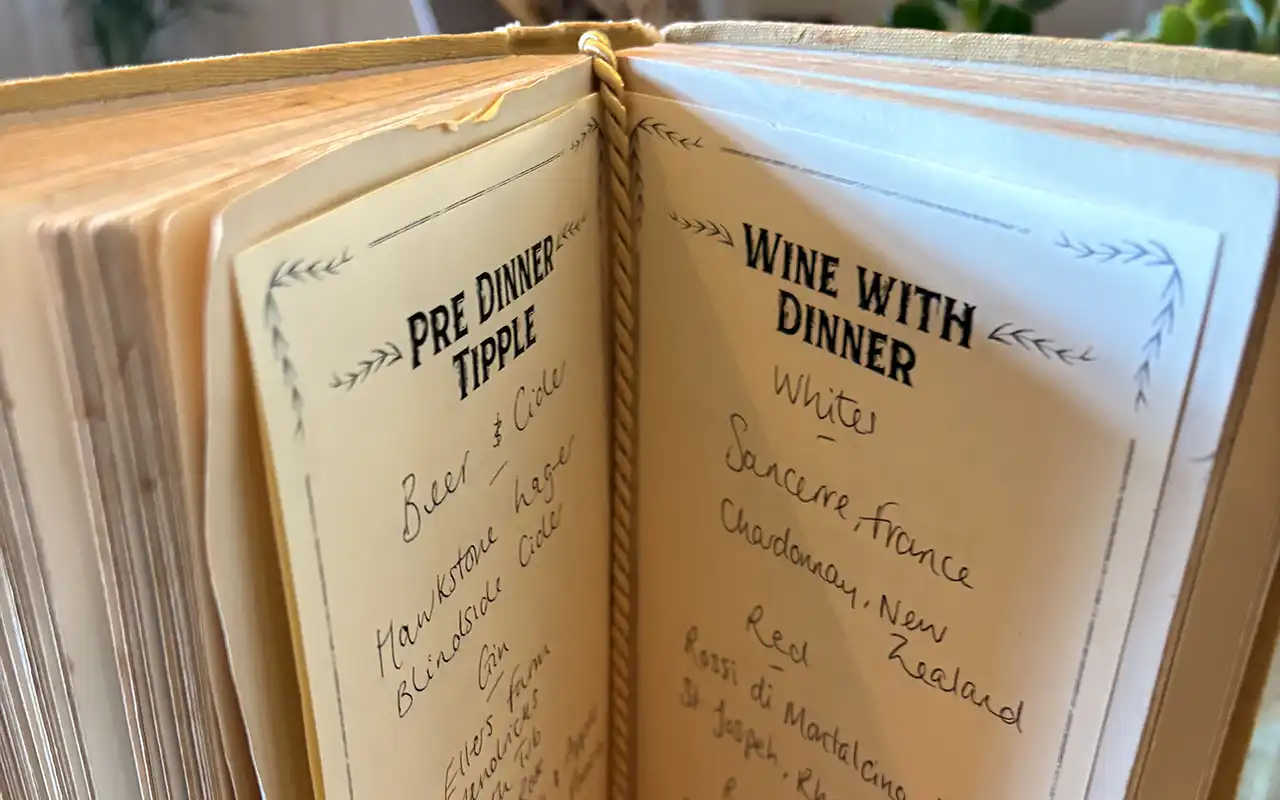 PRE DINNER
TIPPLE
Beer & Cider
Hawkstone Lager
Blindside Cider
Gin
Ellers Farm
WINE WITH
DINNER
Whites
Sancerre, France
Chardonnay, New
Zealand
Red
Rossi di Montalcino
St Jospeh, Rh